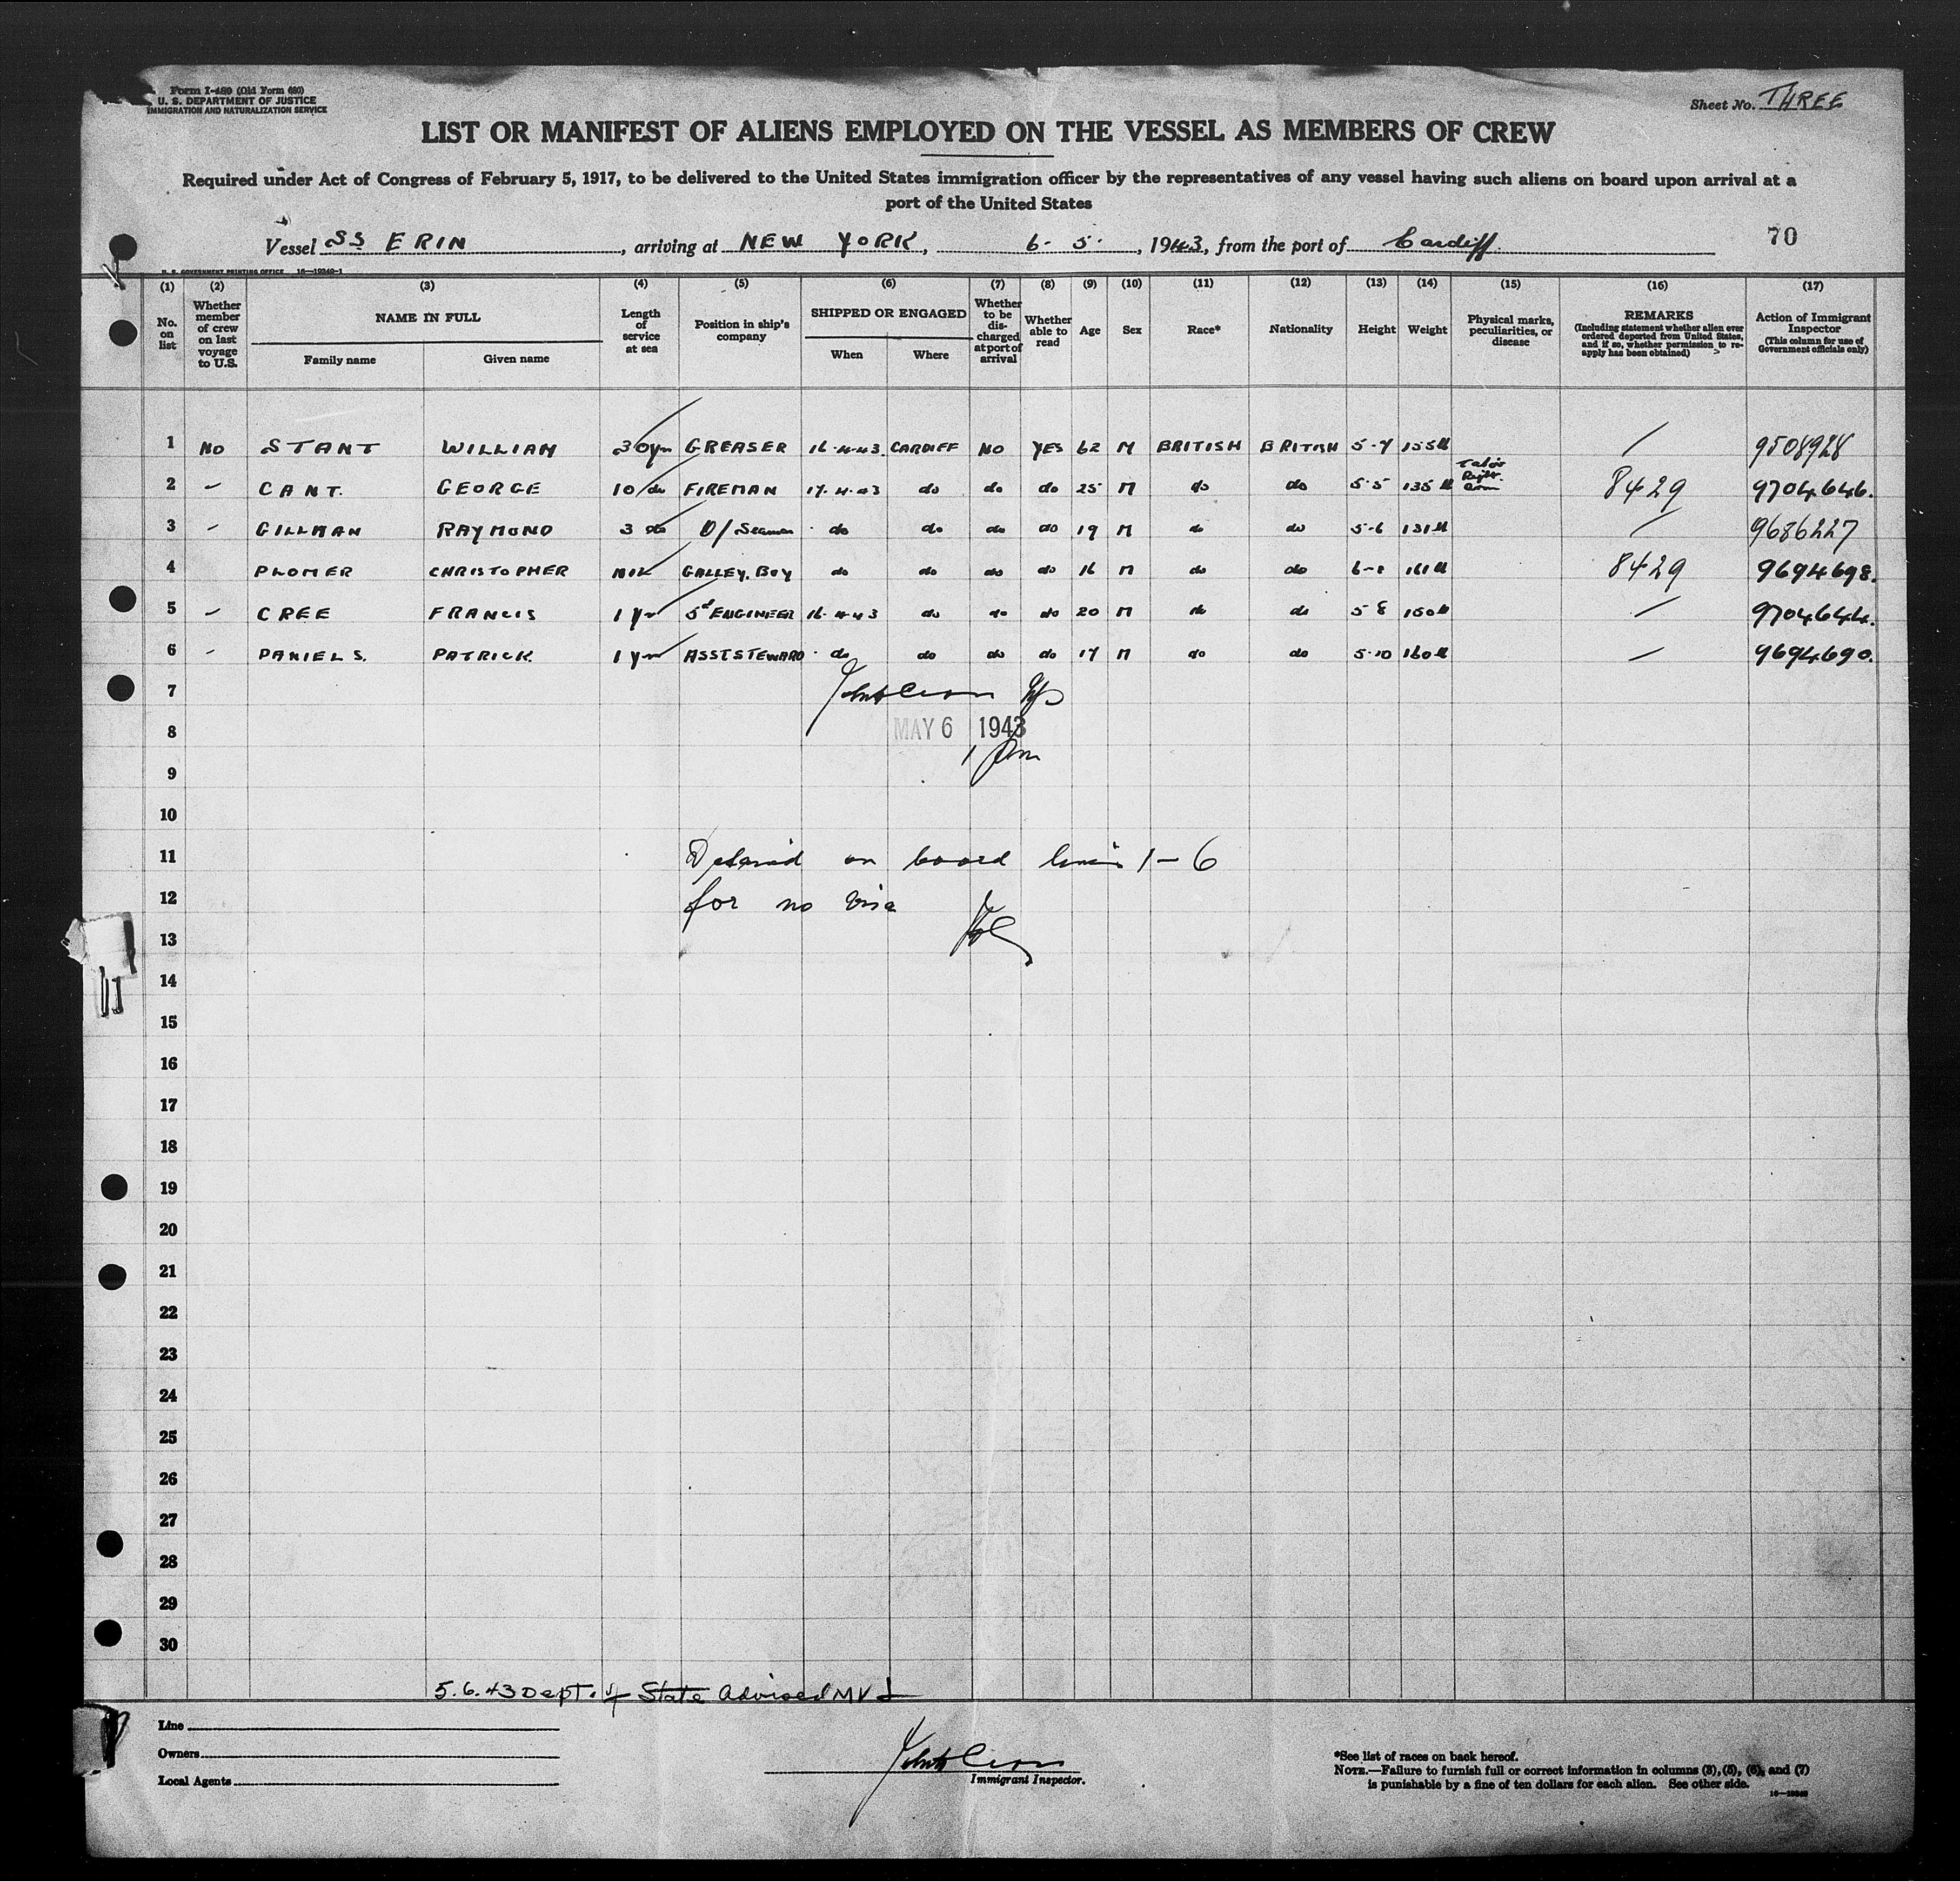 Form I-480 (Old Form 680)
U. S. DEPARTMENT OF JUSTICE
IMMIGRATION AND NATURALIZATION SERVICE
Sheet No. THREE
LIST OR MANIFEST OF ALIENS EMPLOYED ON THE VESSEL AS MEMBERS OF CREW
Required under Act of Congress of February 5, 1917, to be delivered to the United States immigration officer by the representatives of any vessel having such aliens on board upon arrival at a
port of the United States
Vessel SS ERIN, arriving at NEW YORK, 6-5-, 1943, from the port of Cardiff
70
U. S. GOVERNMENT PRINTING OFFICE 16—19349-1
(1) (2) (3) (4) (5) (6) (7) (8) (9) (10) (11) (12) (13) (14) (15) (16) (17)
No. on list
Whether member of crew on last voyage to U.S.
NAME IN FULL
Family name Given name
Length of service at sea
Position in ship's company
SHIPPED OR ENGAGED
When Where
Whether to be discharged at port of arrival
Whether able to read
Age
Sex
Race*
Nationality
Height
Weight
Physical marks, peculiarities, or disease
REMARKS
(Including statement whether alien ever ordered deported from United States, and if so, whether permission to re-apply has been obtained)
Action of Immigrant Inspector
(This column for use of Government officials only)
1 NO STANT WILLIAM 30 yrs GREASER 16-4-43 CARDIFF NO YES 62 M BRITISH BRITISH 5-7 155 lb / 9508928
2 – CANT. GEORGE 10 do FIREMAN 17-4-43 do do do 25 M do do 5-5 135 lb Right Arm 8429 9704646.
3 – GILLMAN RAYMOND 3 do O/Seaman do do do do 19 M do do 5-6 131 lb / 9686227
4 PLOMER CHRISTOPHER NIL GALLEY. BOY do do do do 16 M do do 161 lb 8429 9694698.
5 – CREE FRANCIS 1 yr 5th ENGINEER 16-4-43 do do do 20 M do do 5-8 150 lb – 9704644.
6 – DANIELS. PATRICK 1 yr ASST STEWARD do do do do 17 M do do 5-10 160 lb – 9694690.
7
8 MAY 6 1943
1 pm
9
10
11 Detained on board lines 1-6
12 for no visa
13
14
15
16
17
18
19
20
21
22
23
24
25
26
27
28
29
30
5.6.43 Dept. of State advised MV
Line
Owners
Local Agents
Immigrant Inspector.
*See list of races on back hereof.
NOTE.—Failure to furnish full or correct information in columns (3), (5), (6), and (7)
is punishable by a fine of ten dollars for each alien. See other side.